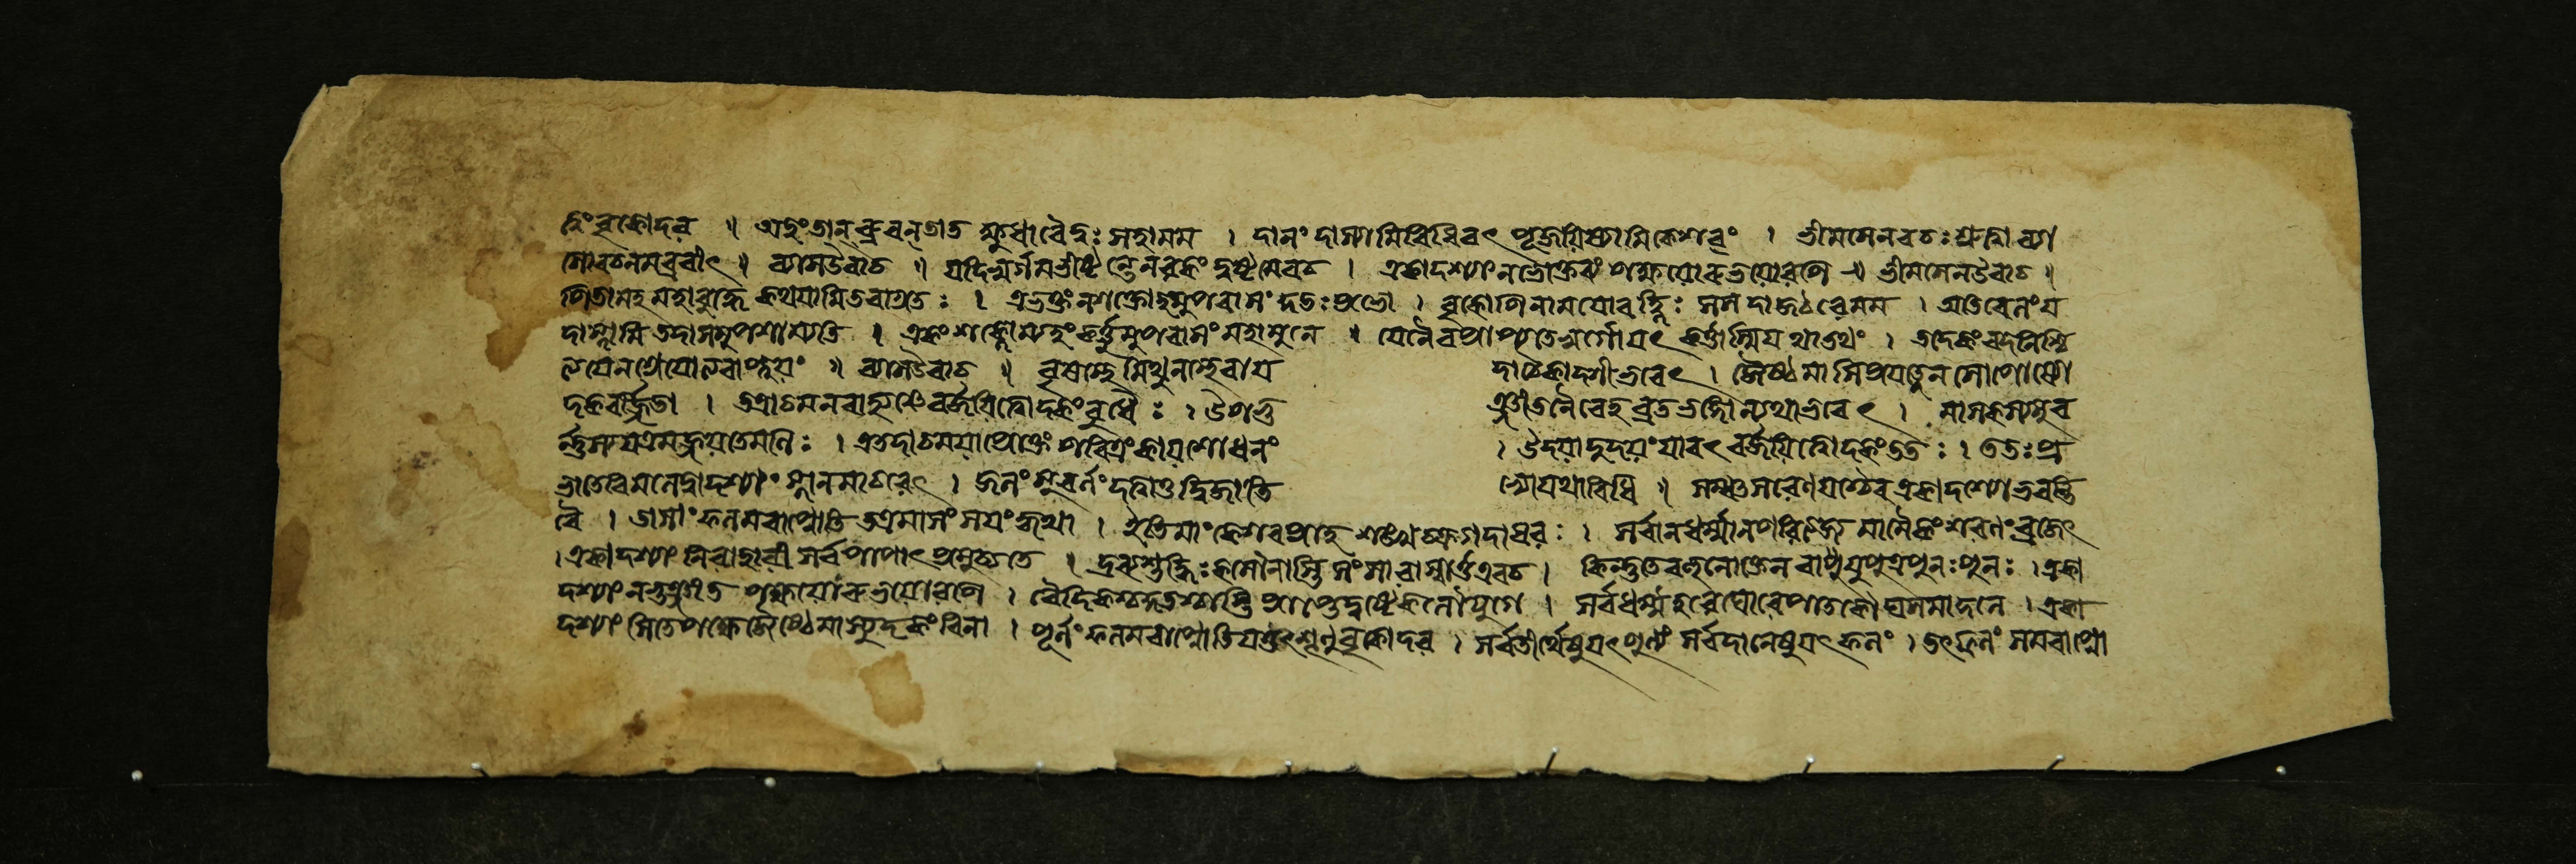 হিং বৃকোদর ॥ অহং তান্ ব্রুবন্ তাত ক্ষুধা বৈ দুঃসহা মম । দানং দাস্যামি বিধিবৎ পূজয়িষ্যামি কেশবং । ভীমসেনবচঃ শ্রুত্বা ব্যা
সো বচনমব্রবীৎ ॥ ব্যাস উবাচ ॥ যদি স্বর্গমভীষ্টন্তে নরকং দুষ্টমেব চ । একাদশ্যাং ন ভোক্তব্যং পক্ষয়োরুভয়োরপি ॥ ভীমসেন উবাচ ॥
পিতামহ মহাবুদ্ধে কথয়ামি তবাগ্রতঃ । একভক্তং ন শক্নোমি উপবাসং কুতঃ প্রভো । বৃকো হি নাম যো বহ্নিঃ সদা জঠরে মম । অতিবেলং য
দাশ্নামি তদা সমুপশাম্যতি । একং শক্নোম্যহং কর্ত্তুমুপবাসং মহামুনে । যেনৈব প্রাপ্যতে স্বর্গো যৎ কর্ত্তাস্মি যথাতথং । তদেকং বদ নিশ্চি
ত্য যেন শ্রেয়োঽহমাপ্নুয়াং ॥ ব্যাস উবাচ ॥ বৃষস্থে মিথুনস্থে বা য দা চৈকাদশী ভবেৎ । জ্যৈষ্ঠমাসি প্রযত্নেন সোপোষ্যো
দকবর্জ্জিতা । তত্রাচমনবারি চ বর্জয়িত্বোদকং বুধৈঃ । উপভু ঞ্জীত নৈবেহ ব্রতভঙ্গোঽন্যথা ভবেৎ । মাসকস্যসুব
র্ণস্য যত্র মজ্জয়তে মণিঃ । এতদাচময়া প্রোক্তং পবিত্রং কায়শোধনং । উদয়াদুদয়ং যাবৎ বর্জয়িত্বোদকং ততঃ । ততঃ প্র
ভাতে বিমলে দ্বাদশ্যাং স্নানমাচরেৎ । জলং সুবর্ণং দত্ত্বা তু দ্বিজাতি ভ্যো যথাবিধি ॥ সম্বৎসরেণ যশ্চৈব একাদশ্যো ভবন্তি
বৈ । তাসাং ফলমবাপ্নোতি অত্র মাসং সয়ং কৃথা । ইতি মাং কেশবঃ প্রাহ শঙ্খচক্রগদাধরঃ । সর্বান্ ধর্ম্মান্ পরিত্যজ্য মামেকং শরণং ব্রজেৎ
। একাদশ্যাং নিরাহারী সর্বপাপাৎ প্রমুচ্যতে । দ্রব্যশুদ্ধিঃ কলৌ নাস্তি সংস্কারাস্মার্ত্ত এব চ । কিন্তু তে বহুনোক্তেন বায়ুপুত্র পুনঃ পুনঃ । একা
দশ্যাং ন ভুঞ্জীত পক্ষয়োরুভয়োরপি । বৈদিকশ্চ কুতশ্চাস্তি প্রাপ্তে দুষ্টে কলৌ যুগে । সর্বধর্ম্মহরে ঘোরে । একা
দশ্যাং সিতে পক্ষে জ্যৈষ্ঠে মাস্যুদকং বিনা । পূর্ণং ফলমবাপ্নোতি যত্তৎ শৃণু বৃকোদর । সর্বতীর্থেষু যৎ পুণ্যং সর্বদানেষু যৎ ফলং । তৎ ফলং সমবাপ্নো